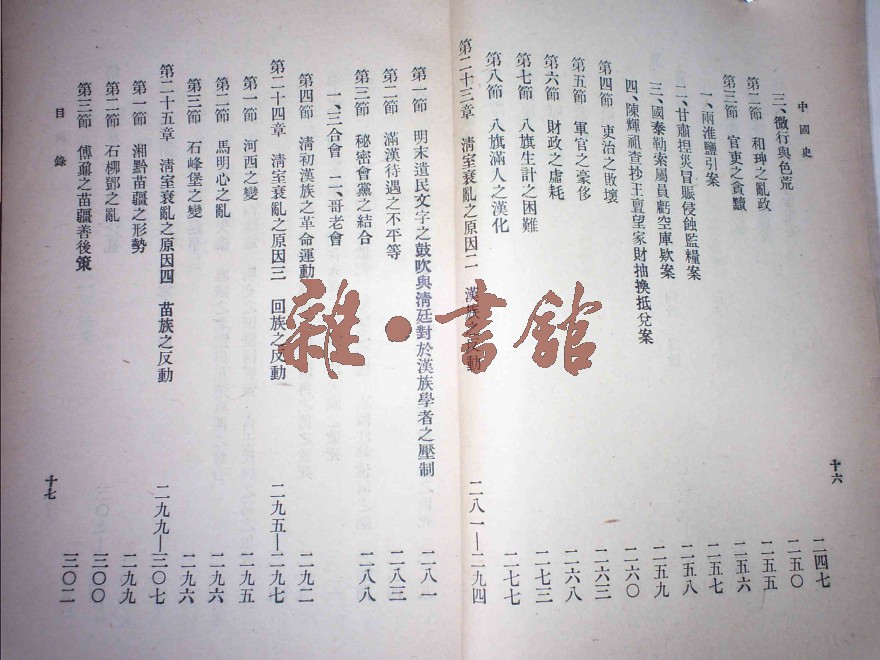 中國史
三、微行與色荒 二四七
第二節 和珅之亂政 二五〇
第三節 官吏之貪黷 二五五
一、兩淮鹽引案 二五六
二、甘肅捏災冒賑侵蝕監糧案 二五八
三、國泰勒索屬員虧空庫欵案 二五九
四、陳輝祖查抄王亶望家財抽換抵兌案 二六〇
第四節 吏治之敗壞 二六三
第五節 軍官之豪侈 二六八
第六節 財政之虛耗 二七三
第七節 八旗生計之困難
第八節 八旗滿人之漢化 二七七
第二十三章 清室衰亂之原因二 漢族之反動 二八一—二九四
十六
第一節 明末遺民文字之鼓吹與清廷對於漢族學者之壓制 二八一
第二節 滿漢待遇之不平等 二八三
第三節 秘密會黨之結合 二八八
一、三合會 二、哥老會
第四節 清初漢族之革命運動 二九二
第二十四章 清室衰亂之原因三 回族之反動 二九五—二九七
第一節 河西之變 二九五
第二節 馬明心之亂 二九六
第三節 石峰堡之變 二九六
第二十五章 清室衰亂之原因四 苗族之反動 二九九—三〇七
第一節 湘黔苗疆之形勢 二九九
第二節 石柳鄧之亂 三〇〇
第三節 傅鼐之苗疆善後策 三〇二
目錄
十七
雜·書館